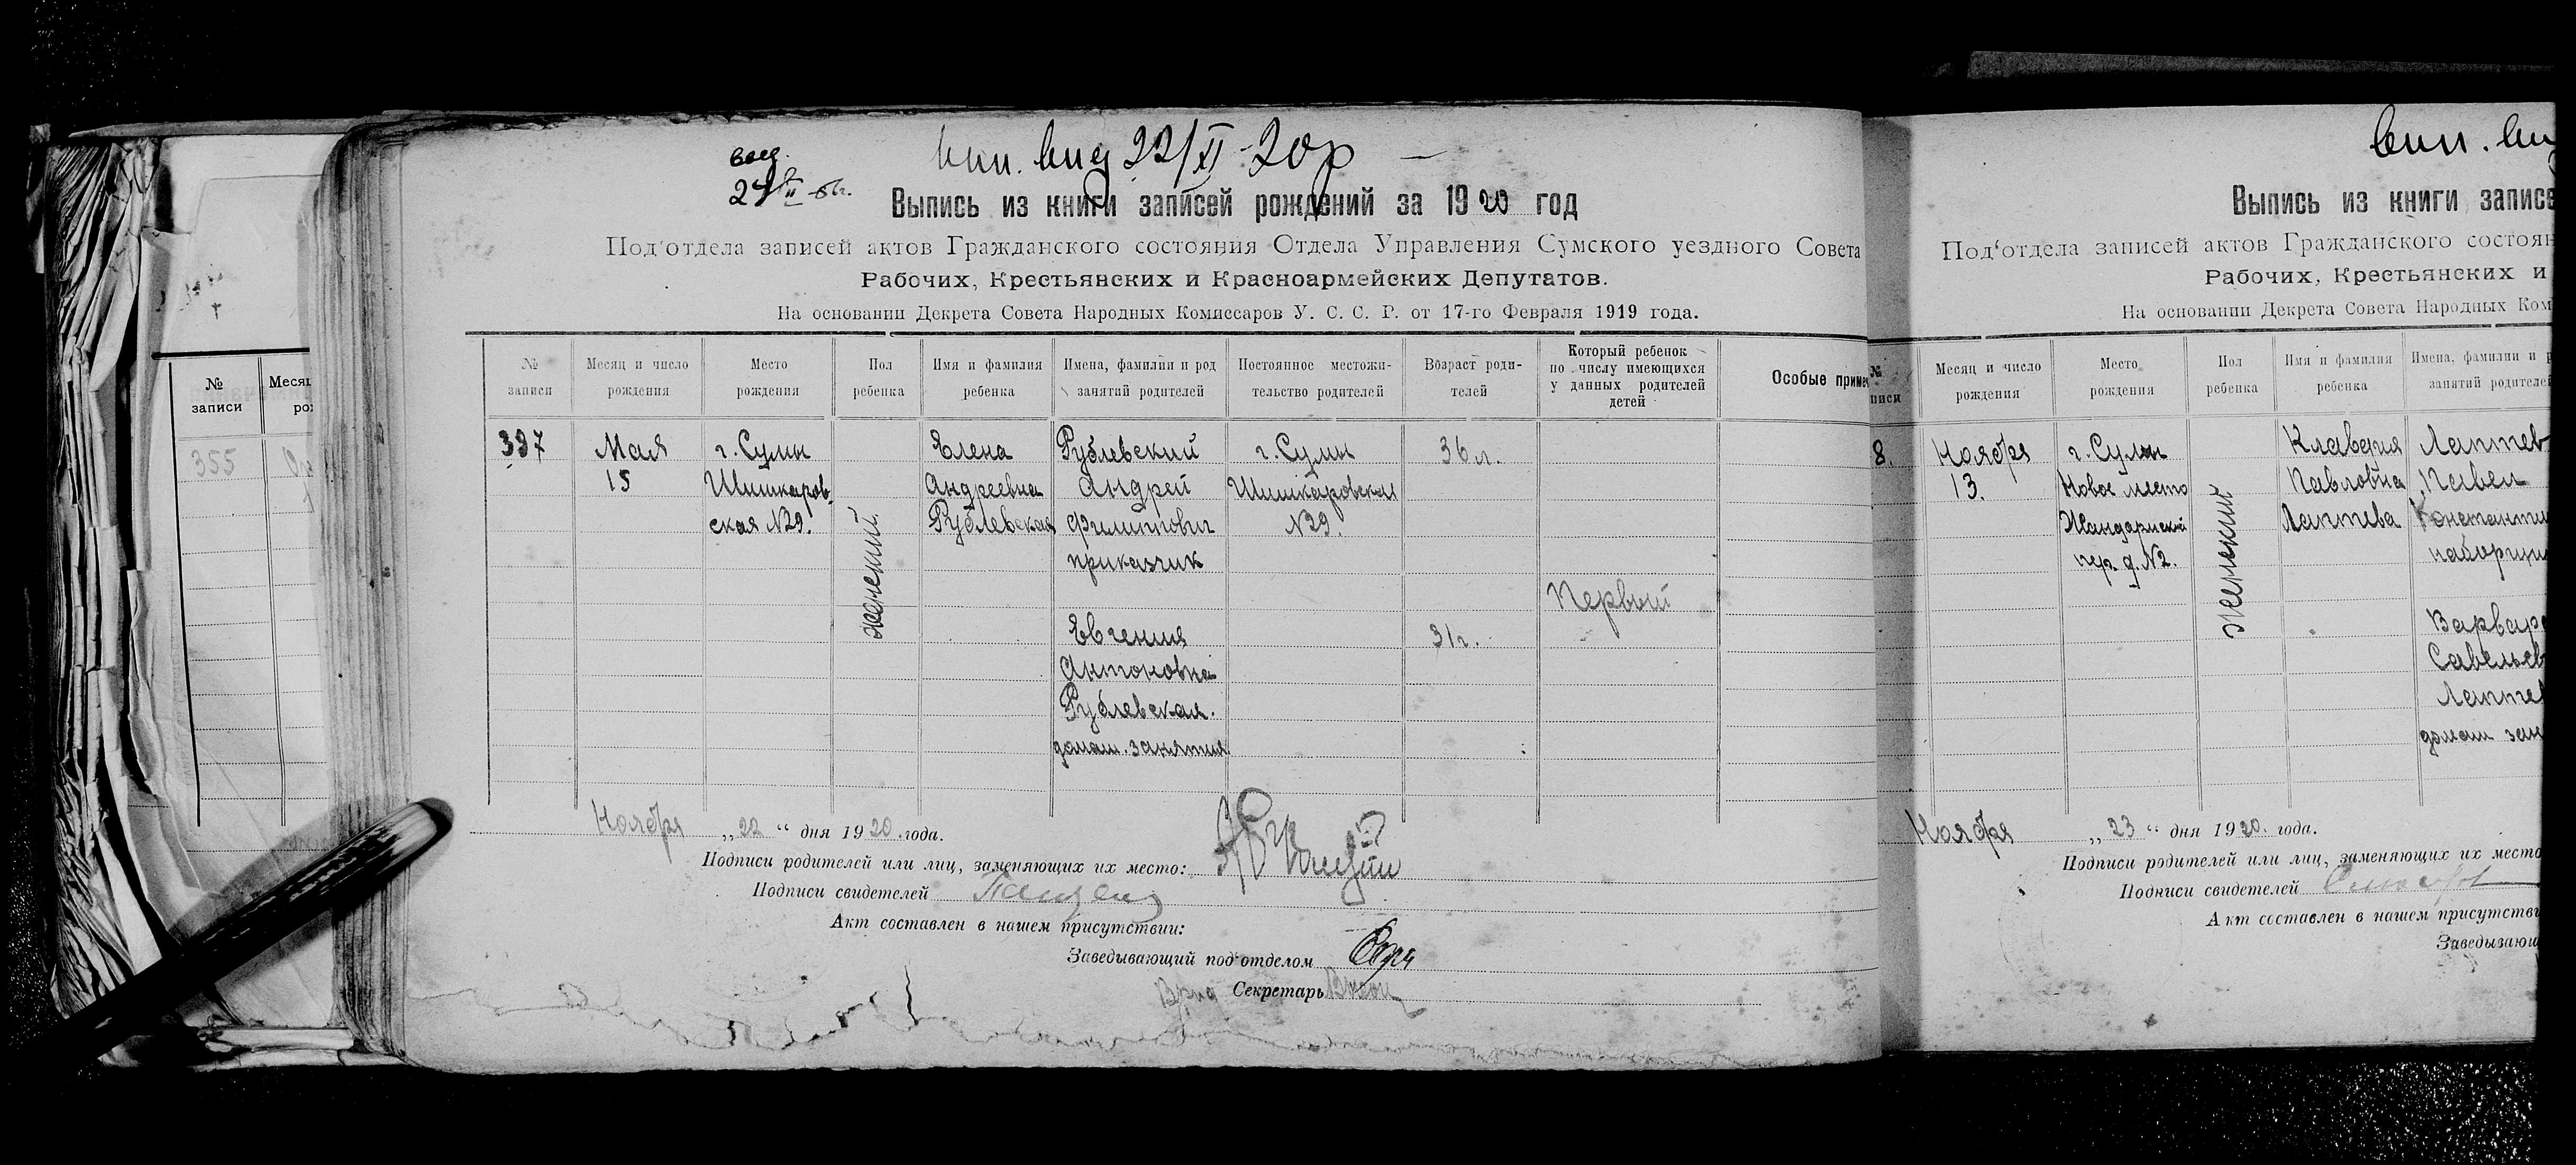 № записи
Месяц
355
вып. вид 22/XI-20р
Выпись из книги записей рождений за 1920 год
Под'отдела записей актов Гражданского состояния Отдела Управления Сумского уездного Совета
Рабочих, Крестьянских и Красноармейских Депутатов.
На основании Декрета Совета Народных Комиссаров У. С. С. Р. от 17-го Февраля 1919 года.
№ записи
Месяц и число рождения
Место рождения
Пол ребенка
Имя и фамилия ребенка
Имена, фамилии и род занятий родителей
Постоянное местожительство родителей
Возраст родителей
Который ребенок по числу имеющихся у данных родителей детей
Особые приме
397
Мая
15
г. Сумы
Шишкаров-
ская №29.
женский.
Елена
Андреевна
Рублевская
Рублевский
Андрей
Филиппович
приказчик
Евгения
Антоновна
Рублевская.
домаш. занятия
г. Сумы
Шишкаровская
№29.
36 л.
31 г.
Первый
Ноября „22“ дня 1920 года.
Подписи родителей или лиц, заменяющих их место:
Подписи свидетелей
Акт составлен в нашем присутствии:
Заведывающий под'отделом
Врид Секретарь
вып. ви
Выпись из книги записе
Под'отдела записей актов Гражданского состоян
Рабочих, Крестьянских и
На основании Декрета Совета Народных Ком
№
писи
Месяц и число рождения
Место рождения
Пол ребенка
Имя и фамилия ребенка
Имена, фамилии и р
занятий родителе
8.
Ноября
13.
г. Сумы
Новое место
Жандармский
пер. д. №2.
женский
Клавдия
Павловна
Лаптева
Лаптев
Павел
Константи
наборщи
Варвара
Савельев
Лаптев
домаш зан
Ноября „23“ дня 1920. года.
Подписи родителей или лиц, заменяющих их место
Подписи свидетелей
Акт составлен в нашем присутстви
Заведывающ